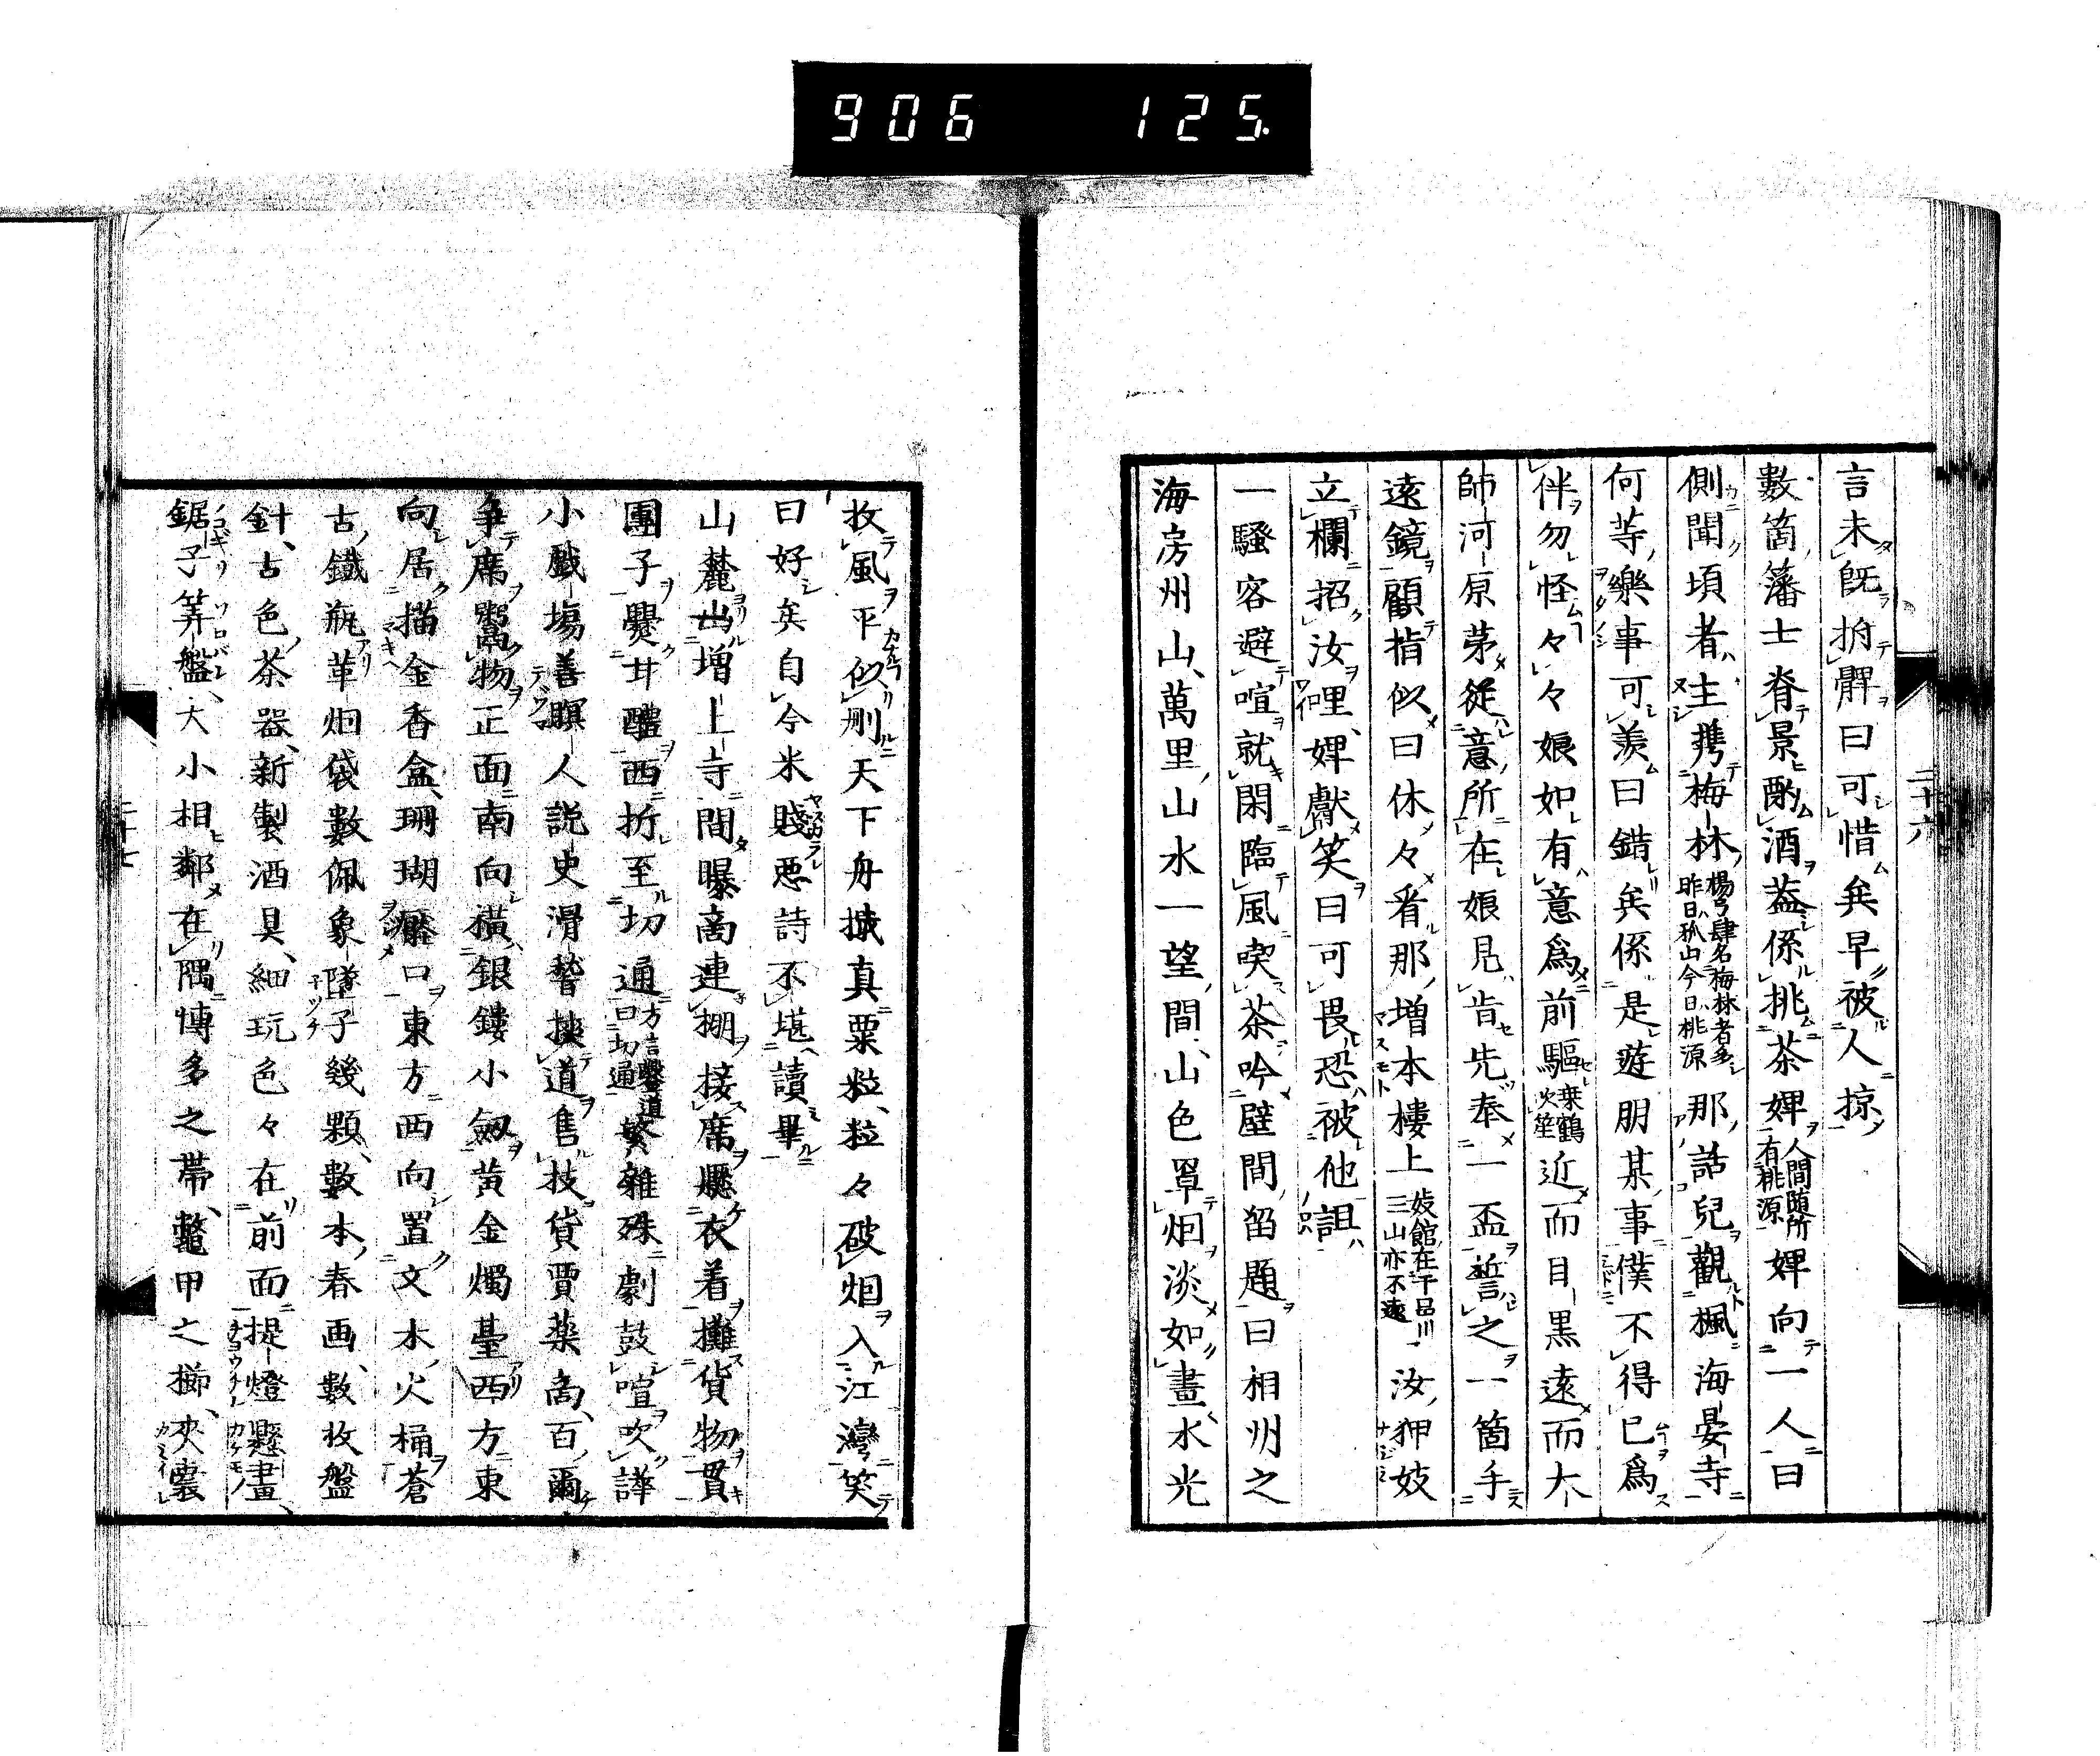 906 125
二十六
言未既拊髀曰可惜矣早被人掠
數箇藩士脊景酌酒蓋係挑茶婢人間随所有桃源婢向一人曰
側聞頃者主携梅林楊弓肆名梅林者多昨日孤山今日桃源那話兒觀楓海晏寺
何等樂事可羨曰錯矣係是遊朋某事僕不得已爲
伴勿怪々々娘如有意爲前驅乗鶴火笙近而目黒遠而大
師河原苐從意所在娘見肯先奉一盃誓之一箇手
遠鏡顧指似曰休々看那増本樓上妓館在干品川三山亦不遠汝狎妓
立欄招汝哩婢獻笑曰可畏恐被他詛
一騷客避喧就閑臨風喫茶吟壁間留題曰相州之
海房州山萬里山水一望間山色罩烟淡如畫水光
收風平似刪天下舟檝真粟粒粒々破烟入江灣笑
曰好矣自今米賤悪詩不堪讀畢
山麓出増上寺間曝商連棚接席懸衣着攤貨物貫
團子爨甘醴西折至切通方言鑿道曰切通繁雜殊劇鼓喧吹譁
小戲塲善瞑人説史滑稽挾道售技貨賈藥商百爾
爭席鬻物正面南向横銀鏤小劔黄金燭臺西方東
向居描金香盒珊瑚癊口東方西向置文木火桶蒼
古鐵瓶革烟袋數佩象墜子幾顆數本春画數枚盤
針古色茶器新製酒具細玩色々在前面提燈懸畫
鋸子筭盤大小相鄰在隅博多之帶鼈甲之櫛夾嚢
二十七